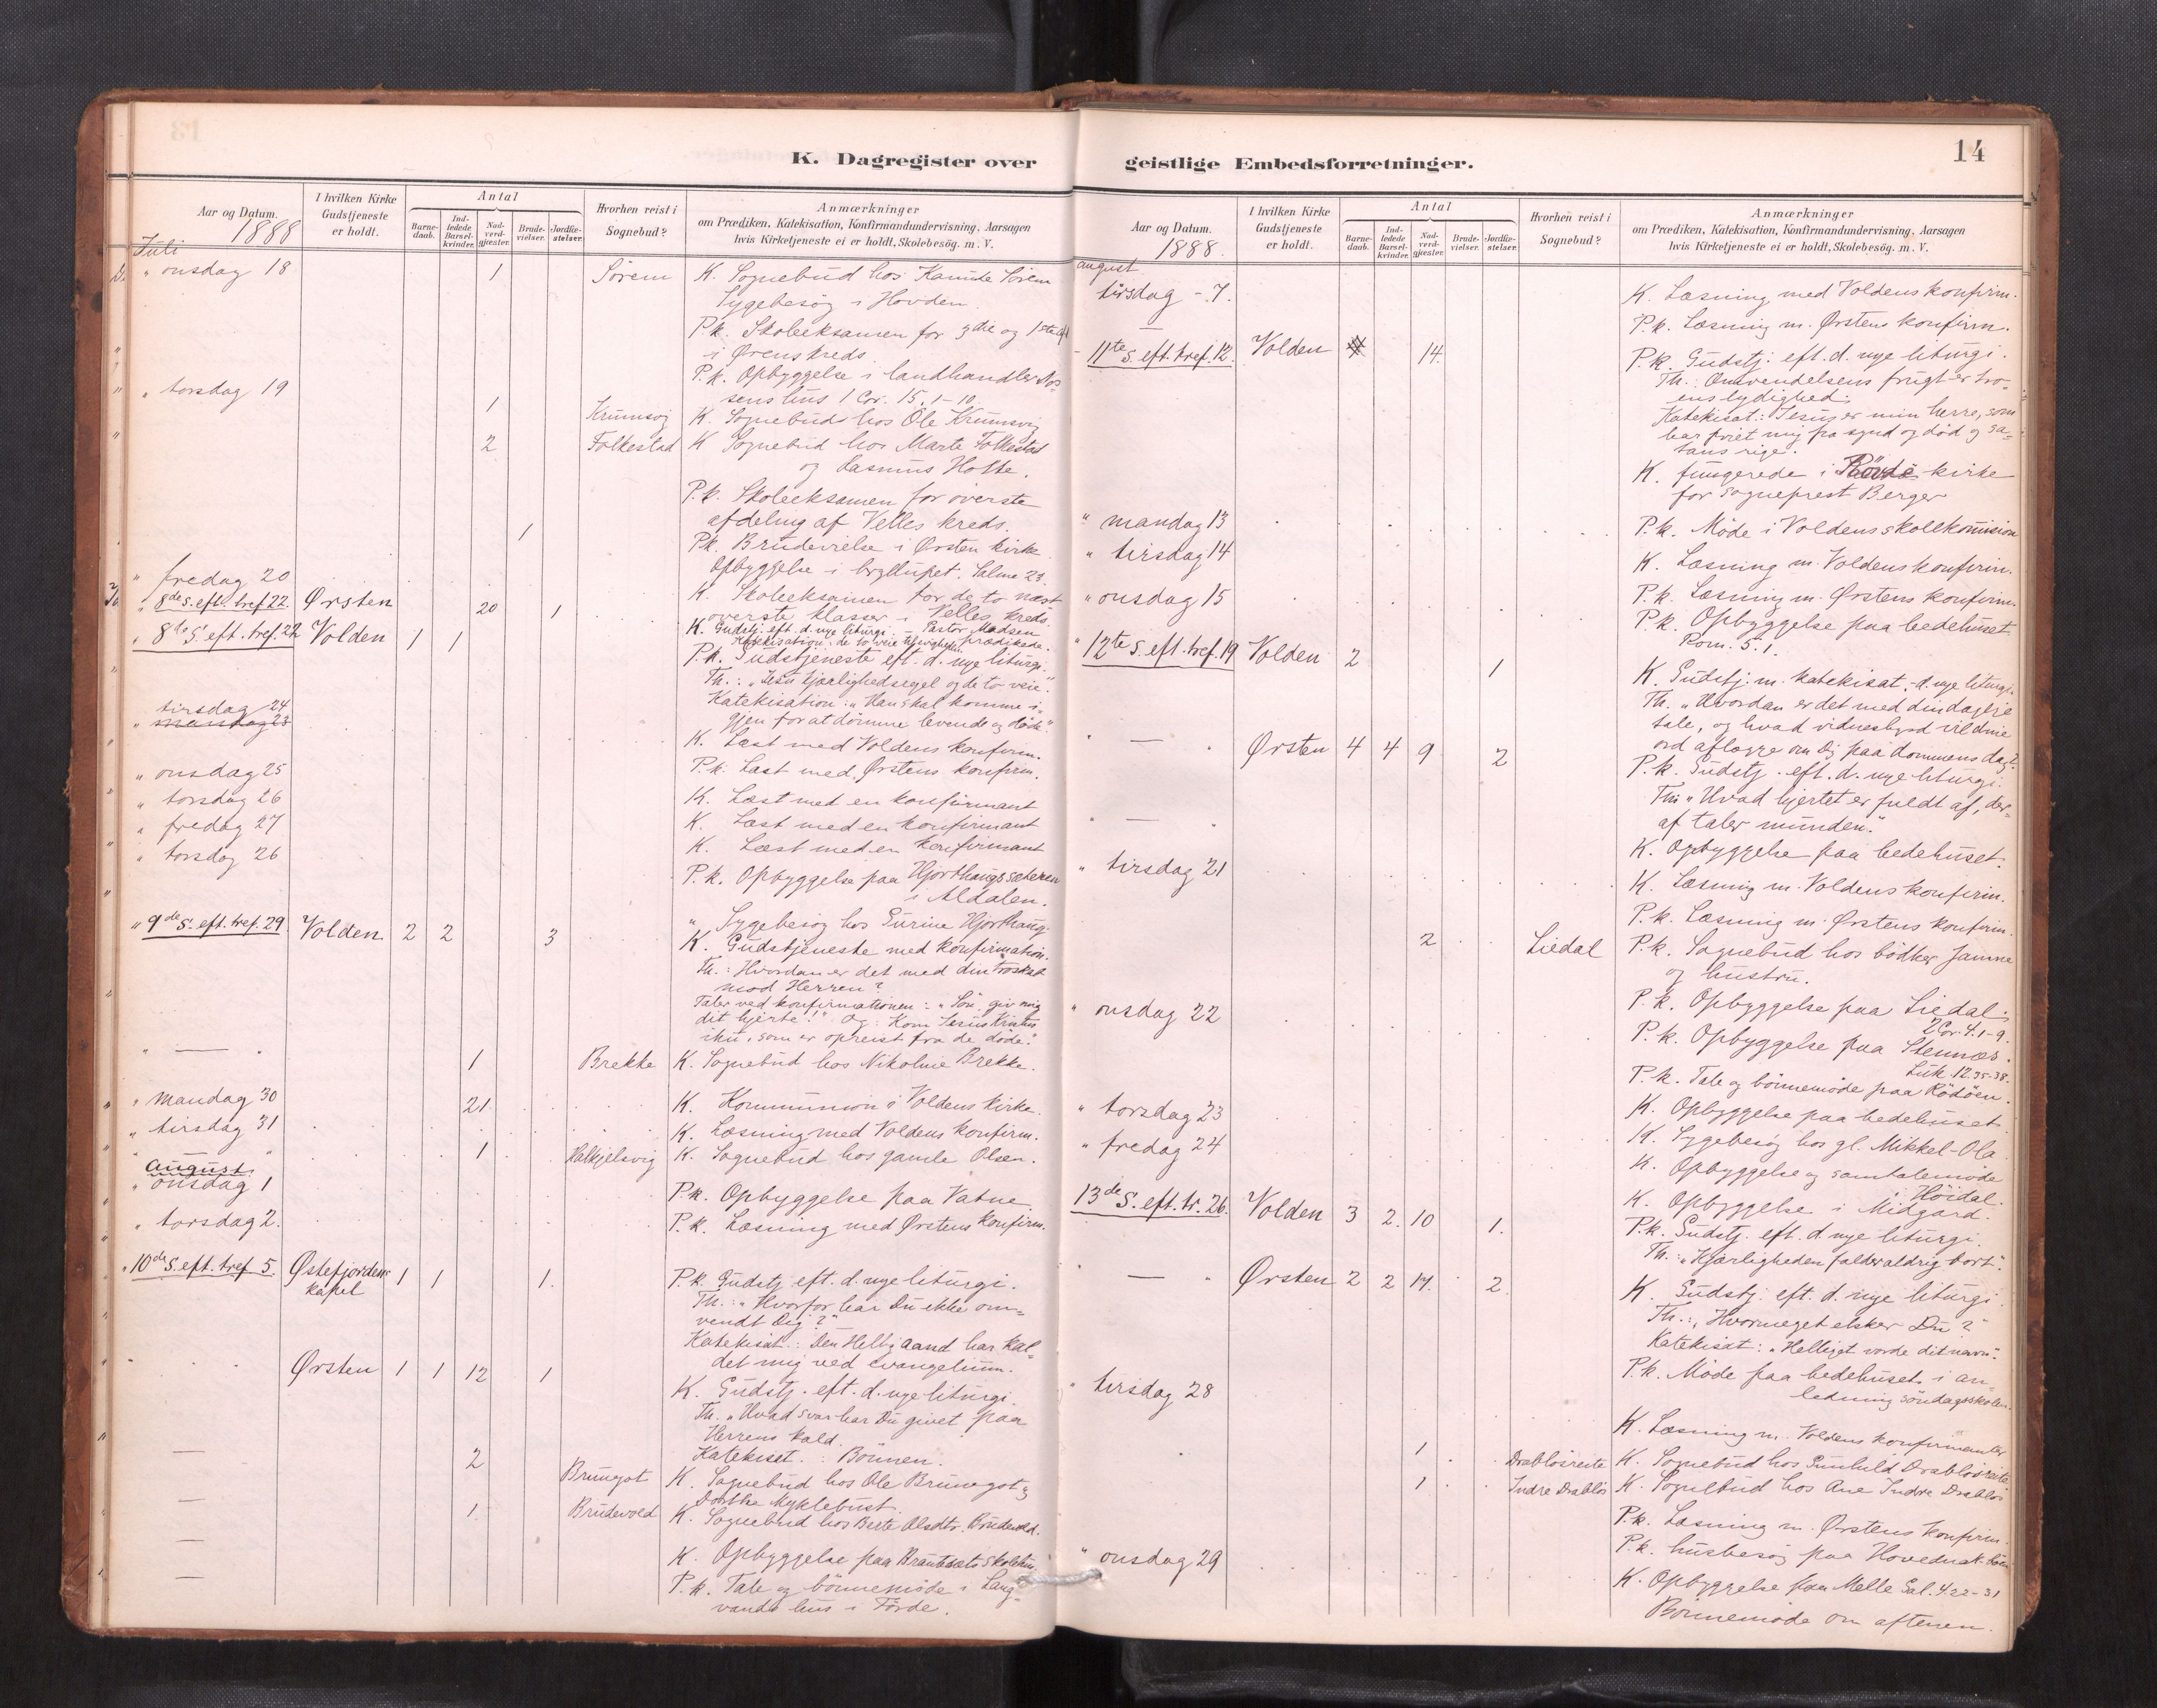 K. Dagregister over
Aar og Datum.
1888
I hvilken Kirke
Gudstjeneste
er holdt.
Antal
Barne-
daab.
Ind-
ledede
Barsel-
kvinder.
Nad-
verd-
gjæster.
Brude-
vielser.
Jordfæ-
stelser.
Hvorhen reist i
Sognebud?
Anmærkninger
om Prædiken, Katekisation, Konfirmandundervisning, Aarsagen
hvis Kirketjeneste ei er holdt, Skolebesög. m. V.
Juli
" onsdag 18 1 Sörem K. Sognebud hos Sörem
Sygebesög i Hovden.
P.k. Skoleeksamen for 3die og 1ste
i Ørens kreds.
P.k. Opbyggelse i landhandler
sens hus 1 Cor. 15. 1-10.
" torsdag 19 1 K. Sognebud hos Ole
2 Folkestad K Sognebud hos Marte Folkestad
og Rasmus Holte.
P.k. Skoleeksamen for överste
afdeling af Velles kreds.
1 P.k. Brudevielse i Ørsten kirke
Opbyggelse i bryllupet. Salme 23.
" fredag 20 K. Skoleeksamen for de to næst
överste klasser i Velles kreds.
" 8de S. eft. tref. 22. Ørsten 20 1 K. Gudstj. eft. d. nye liturgi. - Pastor Madsen
prædikede.
" 8de S. eft. tref. 22 Volden 1 1 P.k. Gudstjeneste eft. d. nye liturgi.
Th.: "Jesu kjærlighedsregel og de to veie".
Katekisation: "Han skal komme i-
gjen for at dömme levende og döde".
tirsdag 24
" mandag 23 K. Læst med Voldens konfirm.
" onsdag 25 P.k. Læst med Ørstens konfirm.
" torsdag 26 K. Læst med en konfirmant
" fredag 27 K. Læst med en konfirmant
K. Læst med en konfirmant
" torsdag 26 P.k. Opbyggelse paa Hjorthaugssæteren
i Aldalen.
" Sygebesög hos Gurine Hjorthaug.
" 9de S. eft. tref. 29. Volden 2 2 3 K. Gudstjeneste med konfirmation.
Th.: Hvordan er det med din troskab
mod Herren?
Taler ved konfirmationen: "Sön, giv mig
dit hjerte!" Og: Kom Jesus Kristus
ihu, som er opreist fra de döde."
" — " 1 Brekke K. Sognebud hos Nikoline Brekke.
" mandag 30 21 K. Kommunion i Voldens kirke.
" tirsdag 31 K. Læsning med Voldens konfirm.
" 1 Halkjelsvig K. Sognebud hos gamle Olsen.
august
" onsdag 1 P.k. Opbyggelse paa Vatne.
" torsdag 2. P.k. Læsning med Ørstens konfirm.
" 10de S. eft. tref 5. Østefjordens
kapel 1 1 1. P.k. Gudstj. eft. d. nye liturgi.
Th.: "Hvorfor har Du ikke om-
vendt Dig?"
Katekisat.: Den Hellig Aand har kal-
det mig ved evangelium.
Ørsten 1 1 12 1 K. Gudstj. eft. d. nye liturgi.
Th. "Hvad svar har Du givet paa
Herrens kald.
Katekisat.: Bönnen.
— 2 Brungot K. Sognebud hos Ole Brungot og
Dorthe Myklebust.
— 1. Brudevold K. Sognebud hos Berte Olsdtr. Brudevold.
— K. Opbyggelse paa
— P.k. Tale og bönnemöde i Lang-
vands hus i Förde.
geistlige Embedsforretninger.
14
Aar og Datum.
1888.
I hvilken Kirke
Gudstjeneste
er holdt.
Antal
Barne-
daab.
Ind-
ledede
Barsel-
kvinder.
Nad-
verd-
gjæster.
Brude-
vielser.
Jordfæ-
stelser.
Hvorhen reist i
Sognebud?
Anmærkninger
om Prædiken, Katekisation, Konfirmandundervisning, Aarsagen
hvis Kirketjeneste ei er holdt, Skolebesög. m. V.
august
tirsdag - 7. K. Læsning med Voldens konfirm.
— P.k. Læsning m. Ørstens konfirm.
- 11te S. eft. tref. 12. Volden 14. P.k. Gudstj. eft. d. nye liturgi.
Th.: Omvendelsens frugt er tro-
ens lydighed.
Katekisat.: Jesus er min herre, som
har friet mig fra synd og död og sa-
tans rige.
K. fungerede i kirke
for sogneprest Berger
" mandag 13 P.k. Möde i Voldens skolekomision
" tirsdag 14 K. Læsning m. Voldens konfirm.
" onsdag 15 P.k. Læsning m. Ørstens konfirm.
P.k. Opbyggelse paa bedehuset.
Rom. 5. 1.
" 12te S. eft. tref. 19 Volden 2 1 K. Gudstj. m. katekisat. - d. nye liturgi.
Th. "Hvordan er det med din daglige
tale, og hvad vidnesbyrd vil dine
ord aflægge om Dig paa dommens dag?
" — " Ørsten 4 4 9 2 P.k. Gudstj. eft. d. nye liturgi.
Th: "Hvad hjertet er fuldt af, der-
af taler munden."
" — " K. Opbyggelse paa bedehuset.
" tirsdag 21 K. Læsning m. Voldens konfirm.
P.k. Læsning m. Ørstens konfirm.
2 Liedal P.k. Sognebud hos bödker Jamne
og hustru.
" onsdag 22 P.k. Opbyggelse paa Liedal.
2 Cor. 4. 1-9.
P.k. Opbyggelse paa Stennæs.
Luk. 12. 35-38.
P.k. Tale og bönnemöde paa Rödöen.
" torsdag 23 K. Opbyggelse paa bedehuset.
" fredag 24 K. Sygebesög hos gl. Mikkel-Ola
K. Opbyggelse og samtalemöde
i Höidal.
K. Opbyggelse i Midgard.
13de S. eft. tr. 26. Volden 3 2. 10 1. P.k. Gudstj. eft. d. nye liturgi.
Th.: "Kjærligheden falder aldrig bort".
" — " Ørsten 2 2 17. 2. K. Gudstj. eft. d. nye liturgi.
Th.: "Hvormeget elsker Du?"
Katekisat: "Helliget vorde dit navn".
P.k. Möde paa bedehuset i an-
ledning söndagsskolen.
" tirsdag 28 K. Læsning m. Voldens konfirmanter
1 Drablösreite K. Sognebud hos Gunhild Drablösreite
1 Indre Drablös K. Sognebud hos Ane Indre Drablös
P.k. Læsning m. Ørstens konfirm.
P.k. husbesög paa
" onsdag 29 K. Opbyggelse paa Melle Gal. 4 22-31
Bönnemöde om aftenen.